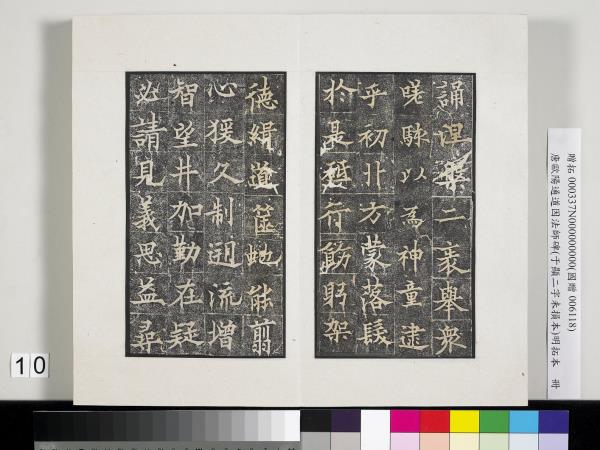 誦涅槃二袠舉衆
嗟駭以為神童逮
乎初丱方蒙落髮
於是砥行飭躬架
德緝道篋虵能翦
心猨久制遊流增
智望井加勤在疑
必請見義思益尋
贈拓 000337N000000000(國贈 006118)
唐歐陽通道因法師碑(于顯二字未損本)明拓本 冊
10